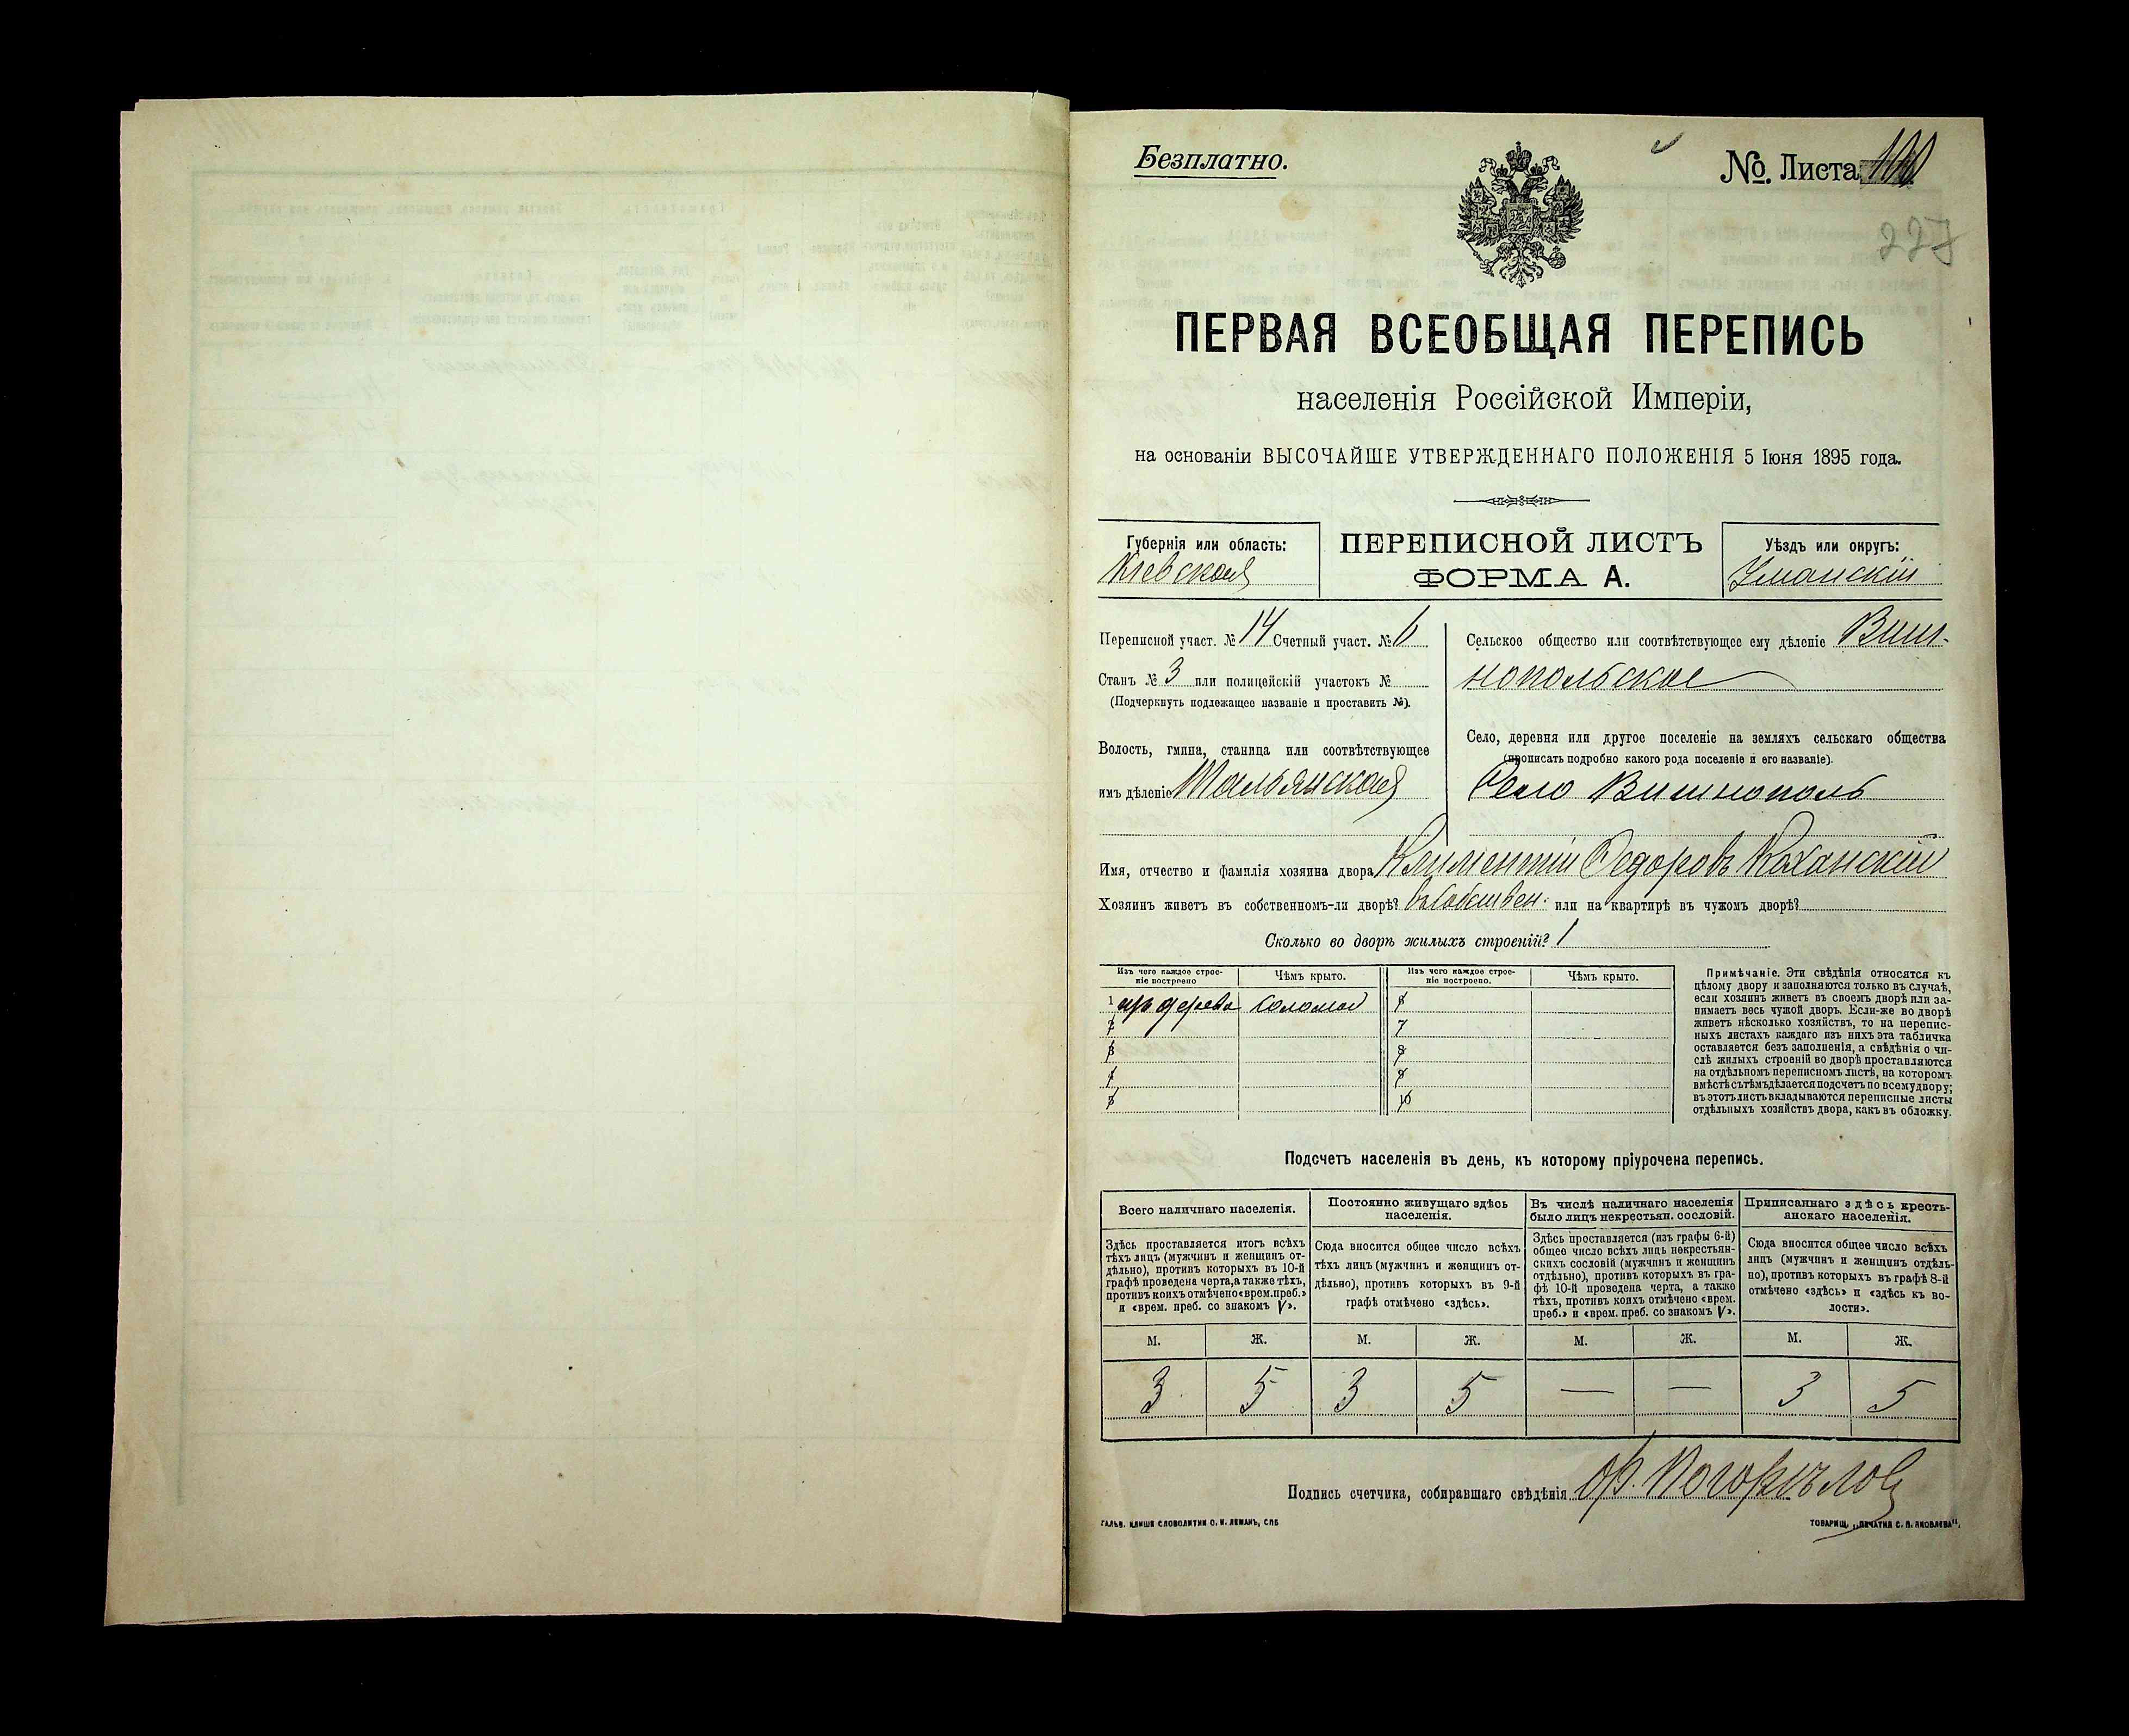 Безплатно.
№. Листа 100
227
ПЕРВАЯ ВСЕОБЩАЯ ПЕРЕПИСЬ
населенія Россійской Имперіи,
на основаніи ВЫСОЧАЙШЕ УТВЕРЖДЕННАГО ПОЛОЖЕНІЯ 5 Іюня 1895 года.
Губернія или область:
Кіевская
ПЕРЕПИСНОЙ ЛИСТЪ
ФОРМА А.
Уѣздъ или округъ:
Уманскій
Переписной участ. № 14 Счетный участ. № 6
Станъ № 3 или полицейскій участокъ №
(Подчеркнуть подлежащее названіе и проставить №).
Волость, гмина, станица или соотвѣтствующее
имъ дѣленіе Тальянская
Сельское общество или соотвѣтствующее ему дѣленіе Виш-
нопольское
Село, деревня или другое поселеніе на земляхъ сельскаго общества
(прописать подробно какого рода поселеніе и его названіе).
Село Вишнополь
Имя, отчество и фамилія хозяина двора Климентій Федоровъ Коханскій
Хозяинъ живетъ въ собственномъ-ли дворѣ? въ собствен. или на квартирѣ въ чужомъ дворѣ?
Сколько во дворѣ жилыхъ строеній? 1
Изъ чего каждое строе-
ніе построено
Чѣмъ крыто.
Изъ чего каждое строе-
ніе построено.
Чѣмъ крыто.
1 изъ дерева соломой 6
2 7
3 8
4 9
5 10
Примѣчаніе. Эти свѣдѣнія относятся къ
цѣлому двору и заполняются только въ случаѣ,
если хозяинъ живетъ въ своемъ дворѣ или за-
нимаетъ весь чужой дворъ. Если-же во дворѣ
живетъ нѣсколько хозяйствъ, то на перепис-
ныхъ листахъ каждаго изъ нихъ эта табличка
оставляется безъ заполненія, а свѣдѣнія о чи-
слѣ жилыхъ строеній во дворѣ проставляются
на отдѣльномъ переписномъ листѣ, на которомъ
вмѣстѣ съ тѣмъ дѣлается подсчетъ по всему двору;
въ этотъ листъ вкладываются переписные листы
отдѣльныхъ хозяйствъ двора, какъ въ обложку.
Подсчетъ населенія въ день, къ которому пріурочена перепись.
Всего наличнаго населенія.
Здѣсь проставляется итогъ всѣхъ
тѣхъ лицъ (мужчинъ и женщинъ от-
дѣльно), противъ которыхъ въ 10-й
графѣ проведена черта, а также тѣхъ,
противъ коихъ отмѣчено «врем. преб.»
и «врем. преб. со знакомъ V».
Постоянно живущаго здѣсь
населенія.
Сюда вносится общее число всѣхъ
тѣхъ лицъ (мужчинъ и женщинъ от-
дѣльно), противъ которыхъ въ 9-й
графѣ отмѣчено «здѣсь».
Въ числѣ наличнаго населенія
было лицъ некрестьян. сословій.
Здѣсь проставляется (изъ графы 6-й)
общее число всѣхъ лицъ некрестьян-
скихъ сословій (мужчинъ и женщинъ
отдѣльно), противъ которыхъ въ гра-
фѣ 10-й проведена черта, а также
тѣхъ, противъ коихъ отмѣчено «врем.
преб.» и «врем. преб. со знакомъ V».
Приписаннаго здѣсь кресть-
янскаго населенія.
Сюда вносится общее число всѣхъ
лицъ (мужчинъ и женщинъ отдѣль-
но), противъ которыхъ въ графѣ 8-й
отмѣчено «здѣсь» и «здѣсь къ во-
лости».
М. Ж. М. Ж. М. Ж. М. Ж.
3 5 3 5 — — 3 5
Подпись счетчика, собиравшаго свѣдѣнія Ф. Погорѣловъ
ГАЛЬВ. КЛИШЕ СЛОВОЛИТНИ О. И. ЛЕМАНЪ, СПБ
ТОВАРИЩ. „ПЕЧАТНЯ С. П. ЯКОВЛЕВА".